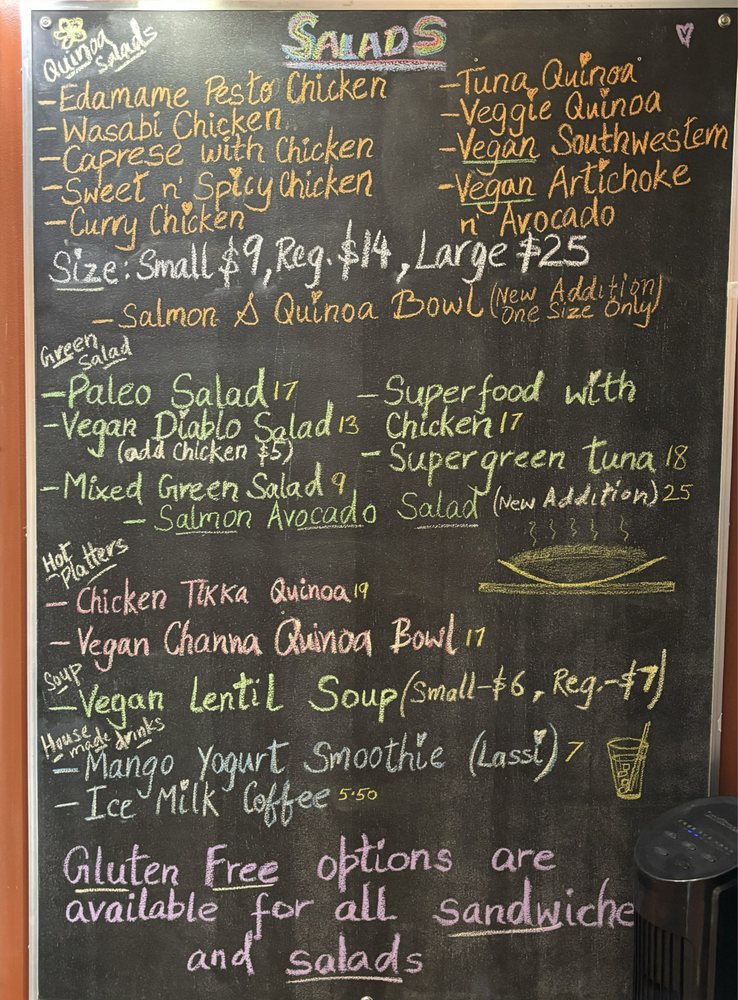 SALADS
Quinoa
Salads
-Edamame Pesto Chicken
-Wasabi Chicken
-Caprese with Chicken
-Sweet n' Spicy Chicken
-Curry Chicken
-Tuna Quinoa
-Veggie Quinoa
-Vegan Southwestern
-Vegan Artichoke
n' Avocado
Size: Small $9, Reg. $14, Large $25
-Salmon & Quinoa Bowl (New Addition)
One Size Only)
Green
Salad
-Paleo Salad 17
-Vegan Diablo Salad 13
(add chicken $5)
-Mixed Green Salad 9
-Superfood with
Chicken 17
-Supergreen tuna 18
-Salmon Avocado Salad (New Addition) 25
Hot
Platters
-Chicken Tikka Quinoa 19
-Vegan Channa Quinoa Bowl 17
Soup
-Vegan Lentil Soup (Small-$6, Reg.-$7)
House
made drinks
-Mango Yogurt Smoothie (Lassi) 7
-Ice Milk Coffee 5.50
Gluten Free options are
available for all sandwiche
and salads